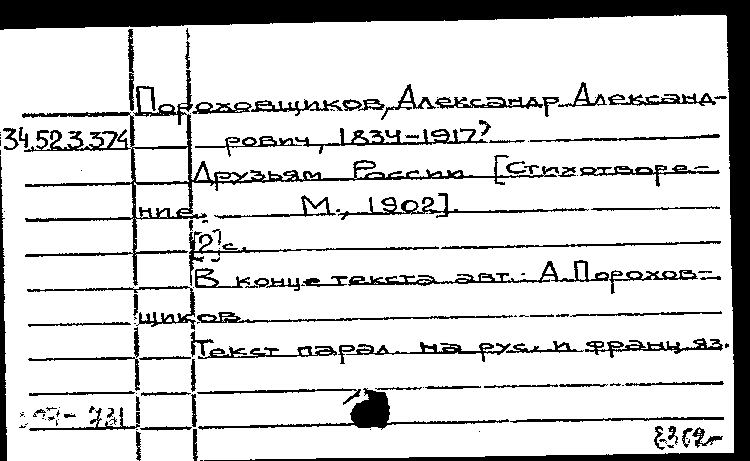 Пороховщиков, Александр Александ-
34.52.3.374 рович, 1834-1917?
Друзьям России. [Стихотворе-
ние. М., 1902].
[2] с.
В конце текста авт.: А. Порохов-
щиков.
Текст парал. на рус. и франц. яз.